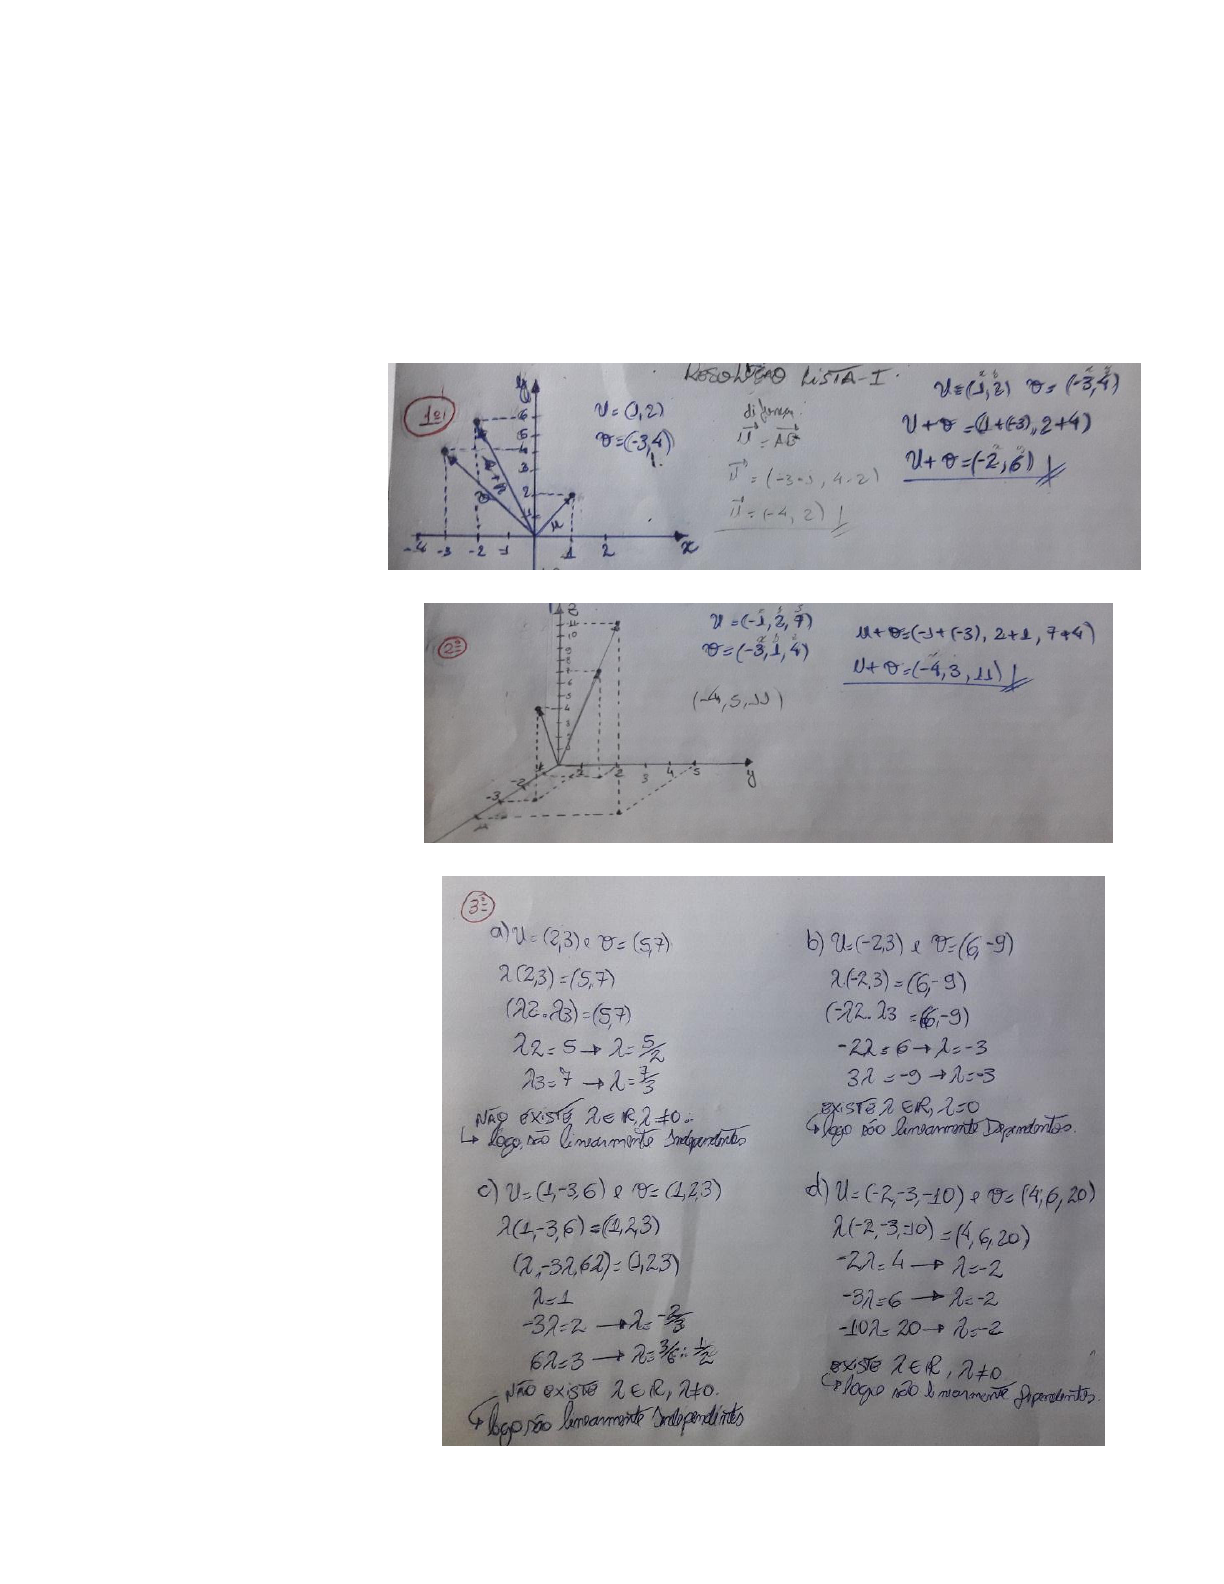 RESOLUÇÃO LISTA-I.
1ª)
y
6
5
4
3
2
1
-4 -3 -2 -1 1 2 x
v u+v u
u=(1,2)
v=(-3,4)
u⃗ = AB⃗
u⃗ = (-3-1, 4-2)
u⃗ = (-4, 2)
u=(1,2) v=(-3,4)
u+v=(1+(-3), 2+4)
u+v=(-2, 6)
2ª
z
11
10
9
8
7
6
5
4
3
-2
-3
2 3 4 5
y
u=(-1,2,7)
v=(-3,1,4)
(-4,5,11)
u+v=(-1+(-3), 2+1, 7+4)
u+v=(-4,3,11)
3ª
a) u=(2,3) e v=(5,7)
λ(2,3)=(5,7)
(λ2.λ3)=(5,7)
λ2=5 → λ=5/2
λ3=7 → λ=7/3
NÃO EXISTE λ∈R, λ≠0.
↳ logo são linearmente Independentes
b) u=(-2,3) e v=(6,-9)
λ.(-2,3)=(6,-9)
(-λ2.λ3 =(6,-9)
-2λ=6 → λ=-3
3λ=-9 → λ=-3
EXISTE λ∈R, λ=0
↳ logo são linearmente Dependentes.
c) u=(1,-3,6) e v=(1,2,3)
λ(1,-3,6)=(1,2,3)
(λ,-3λ,6λ)=(1,2,3)
λ=1
-3λ=2 → λ=-2/3
6λ=3 → λ=3/6 ∴ 1/2
NÃO EXISTE λ∈R, λ≠0.
↳ logo são linearmente Independentes
d) u=(-2,-3,-10) e v=(4,6,20)
λ(-2,-3,-10)=(4,6,20)
-2λ=4 → λ=-2
-3λ=6 → λ=-2
-10λ=20 → λ=-2
EXISTE λ∈R, λ≠0
↳ logo são linearmente dependentes.